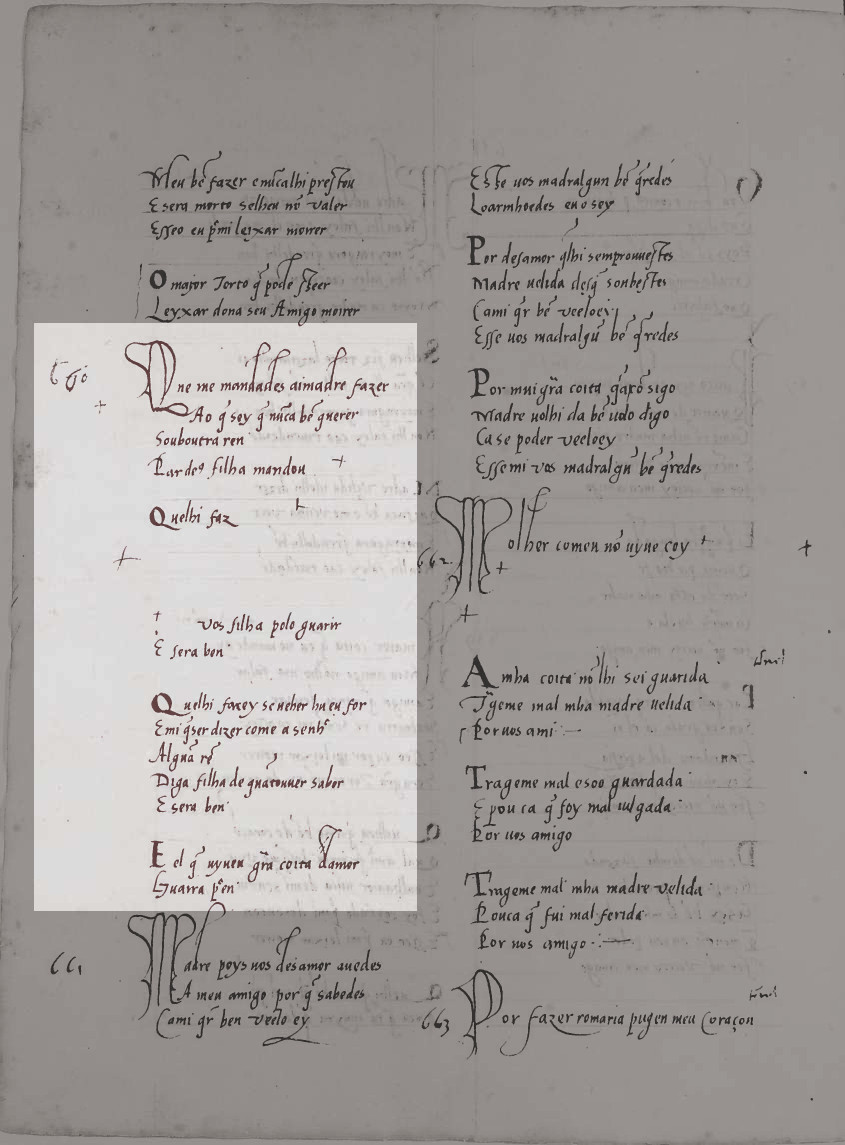 Meu bẽ fazer enũcalhi prestou
E sera morto selheu nõ valer
Esseo eu pʳmi leyxar moirer
O mayor Torto q̃ pode ſteer
Leyxar dona seu Amigo moirer
660
Que me mandades aimadre fazer
Ao q̃ sey q̃ nũca bẽ querer
Souboutra ren
Par deꝰ filha mandou +
Quelhi faz
+
+ vos filha polo guarir
E sera ben
Quelhi farey seueher hu eu for
Emi q̃ser dizer come a senhʳ
Algũa rẽ
Diga filha de quãtouuer sabor
E sera ben
E el q̃ uyueu grã coita damor
Guarra pʳ en
661
Madre poys uos desamor auedes
A meu amigo por q̃ sabedes
Cami q̃r ben veelo ey
Esse uos madralgun bẽ q̃redes
Loarmhoedes eu o sey
Por desamor q̃lhi semprouuestes
Madre uelida desq̃ soubestes
Cami q̃r bẽ veeloey
Esse uos madralgũ bẽ q̃redes
Por mui grã coita q̃arõ sigo
Madre uolhi da bẽ uolo digo
Ca se poder veeloey
Esse mi vos madralgũ bẽ q̃redes
662
Molher comeu nõ uyue coy +
+
Amha coita nõ lhi sei guarida
Trãgeme mal mha madre uelida
Por uos ami
Trageme mal esoo guardada
E pouca q̃ foy mal iulgada
Por uos amigo
Trageme mal mha madre velida
Pouca q̃ fui mal ferida
Por uos amigo
663
Por fazer romaria pugen meu Coraçon